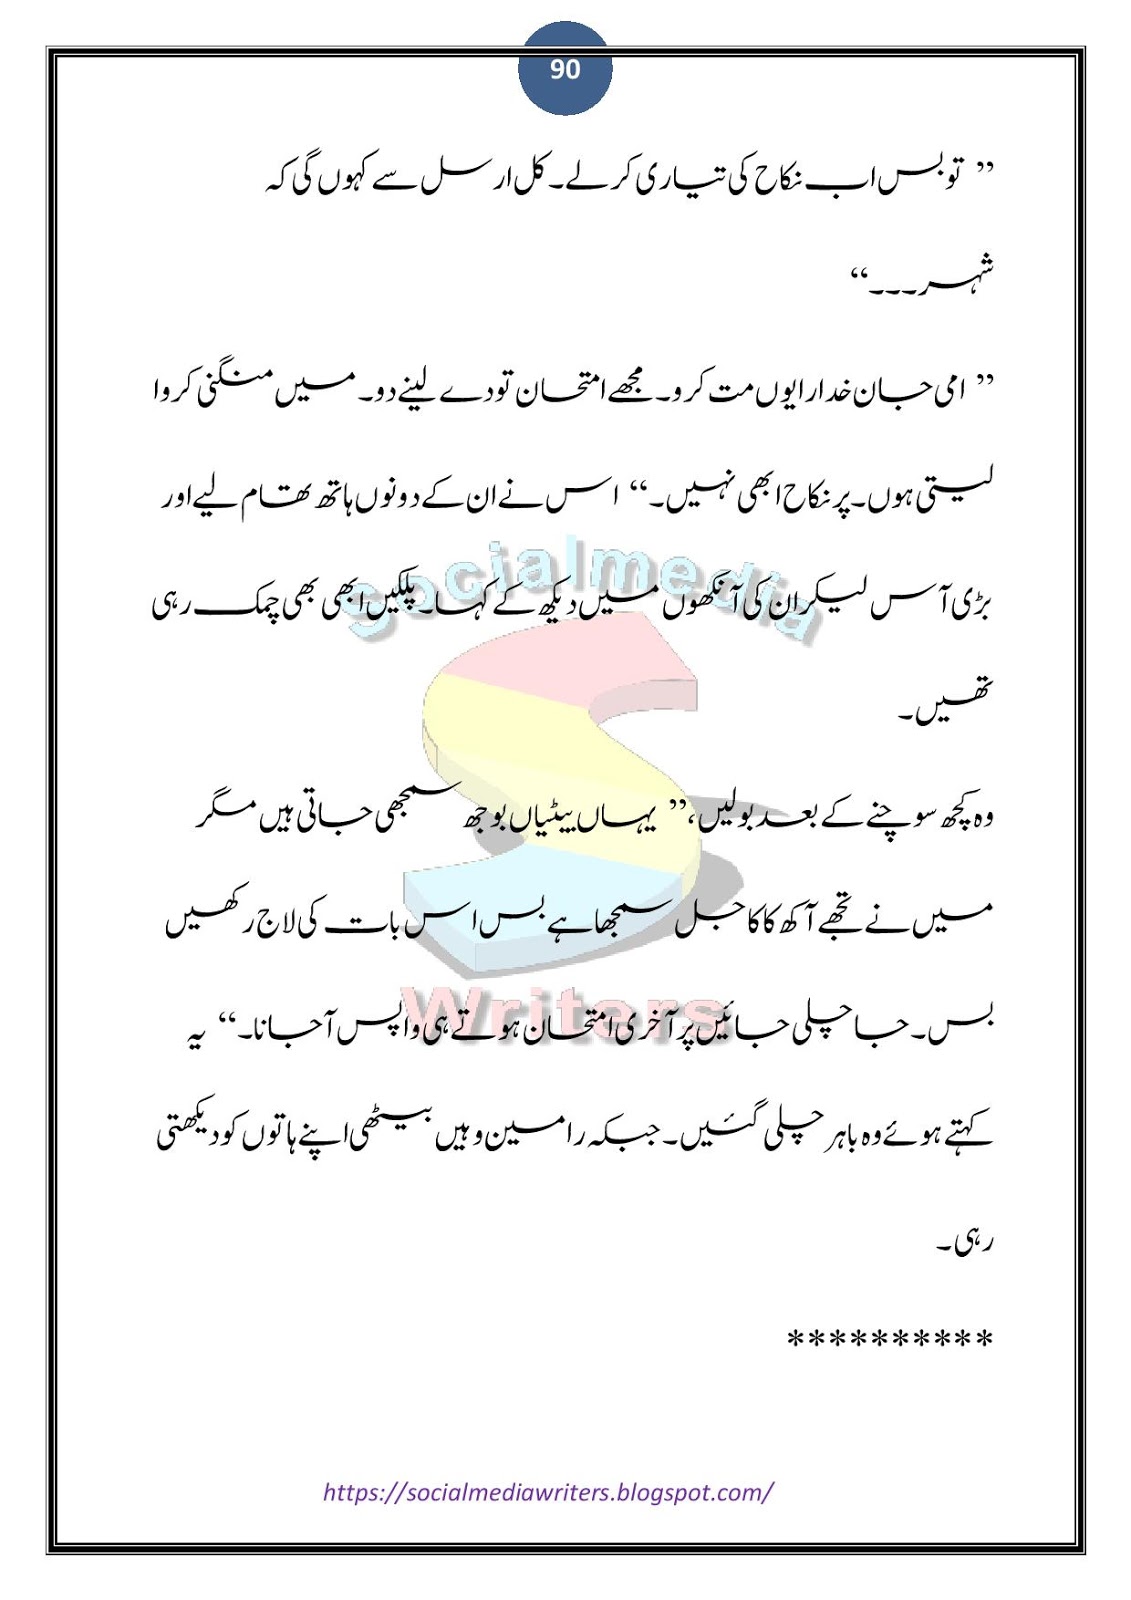 90
” تو بس اب نکاح کی تیاری کر لے۔ کل ارسل سے کہوں گی کہ
شہر۔۔۔“
” امی جان خدارا یوں مت کرو۔ مجھے امتحان تو دے لینے دو۔ میں منگنی کروا
لیتی ہوں۔ پر نکاح ابھی نہیں۔“ اس نے ان کے دونوں ہاتھ تھام لیے اور
بڑی آس لیکر ان کی آنکھوں میں دیکھ کے کہا۔ پلکیں ابھی بھی چمک رہی
تھیں۔
وہ کچھ سوچنے کے بعد بولیں،” یہاں بیٹیاں بوجھ سمجھی جاتی ہیں مگر
میں نے تجھے آکھ کا کاجل سمجھا ہے بس اس بات کی لاج رکھیں
بس۔ جا چلی جائیں پر آخری امتحان ہوتے ہی واپس آجانا۔“ یہ
کہتے ہوئے وہ باہر چلی گئیں۔ جبکہ رامین وہیں بیٹھی اپنے ہاتوں کو دیکھتی
رہی۔
**********
Socialmedia
S
Writers
https://socialmediawriters.blogspot.com/